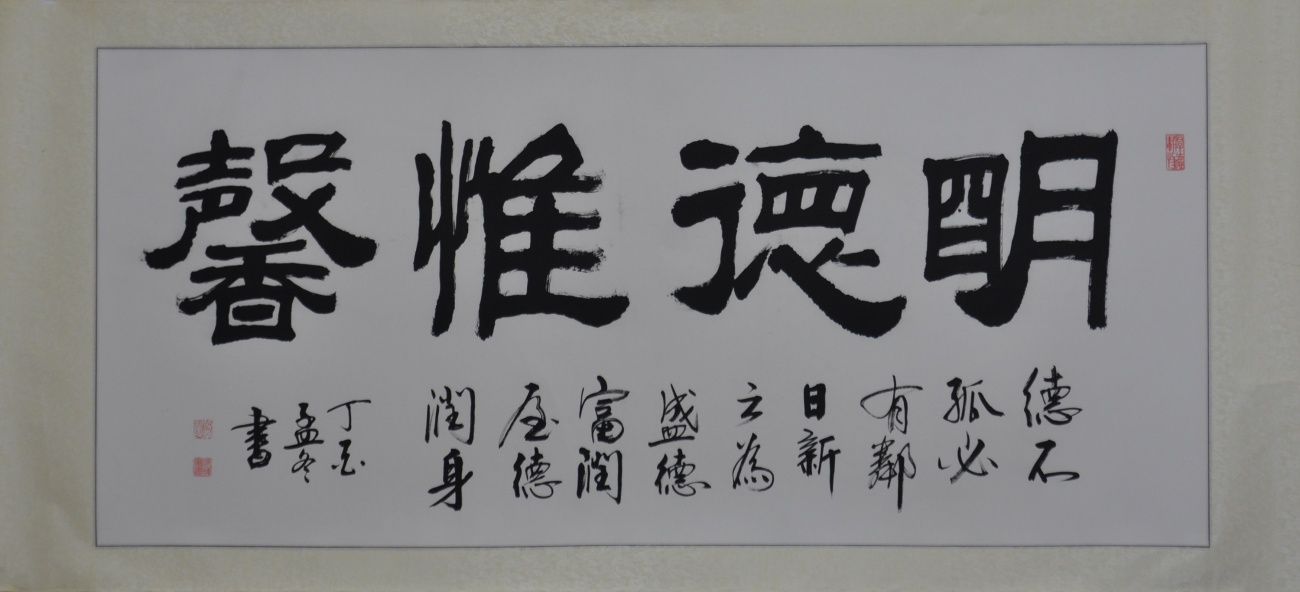 明德惟馨
德不
孤必
有鄰
日新
之為
盛德
富潤
屋德
潤身
丁亥
孟冬
書